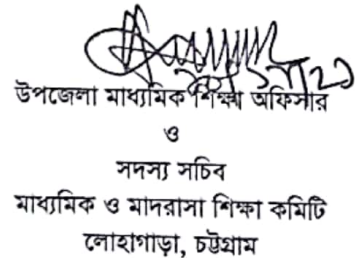 উপজেলা মাধ্যমিক শিক্ষা অফিসার
ও
সদস্য সচিব
মাধ্যমিক ও মাদরাসা শিক্ষা কমিটি
লোহাগাড়া, চট্টগ্রাম